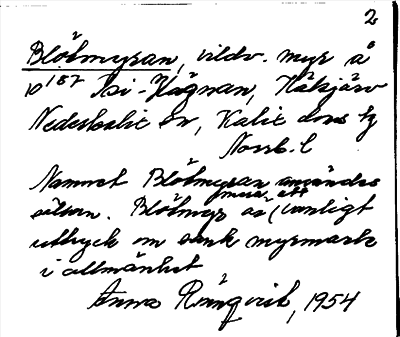 2
Blötmyran, vildv. myr å
Hägnan, Näsjärv
Nederkalix sn, Kalix doms hg
Norrb. l
Namnet Blötmyran användes
även ett
sällan. Blötmyr är (vanligt
uttryck om sank myrmark
i allmänhet
Anna Rönnqvist, 1954